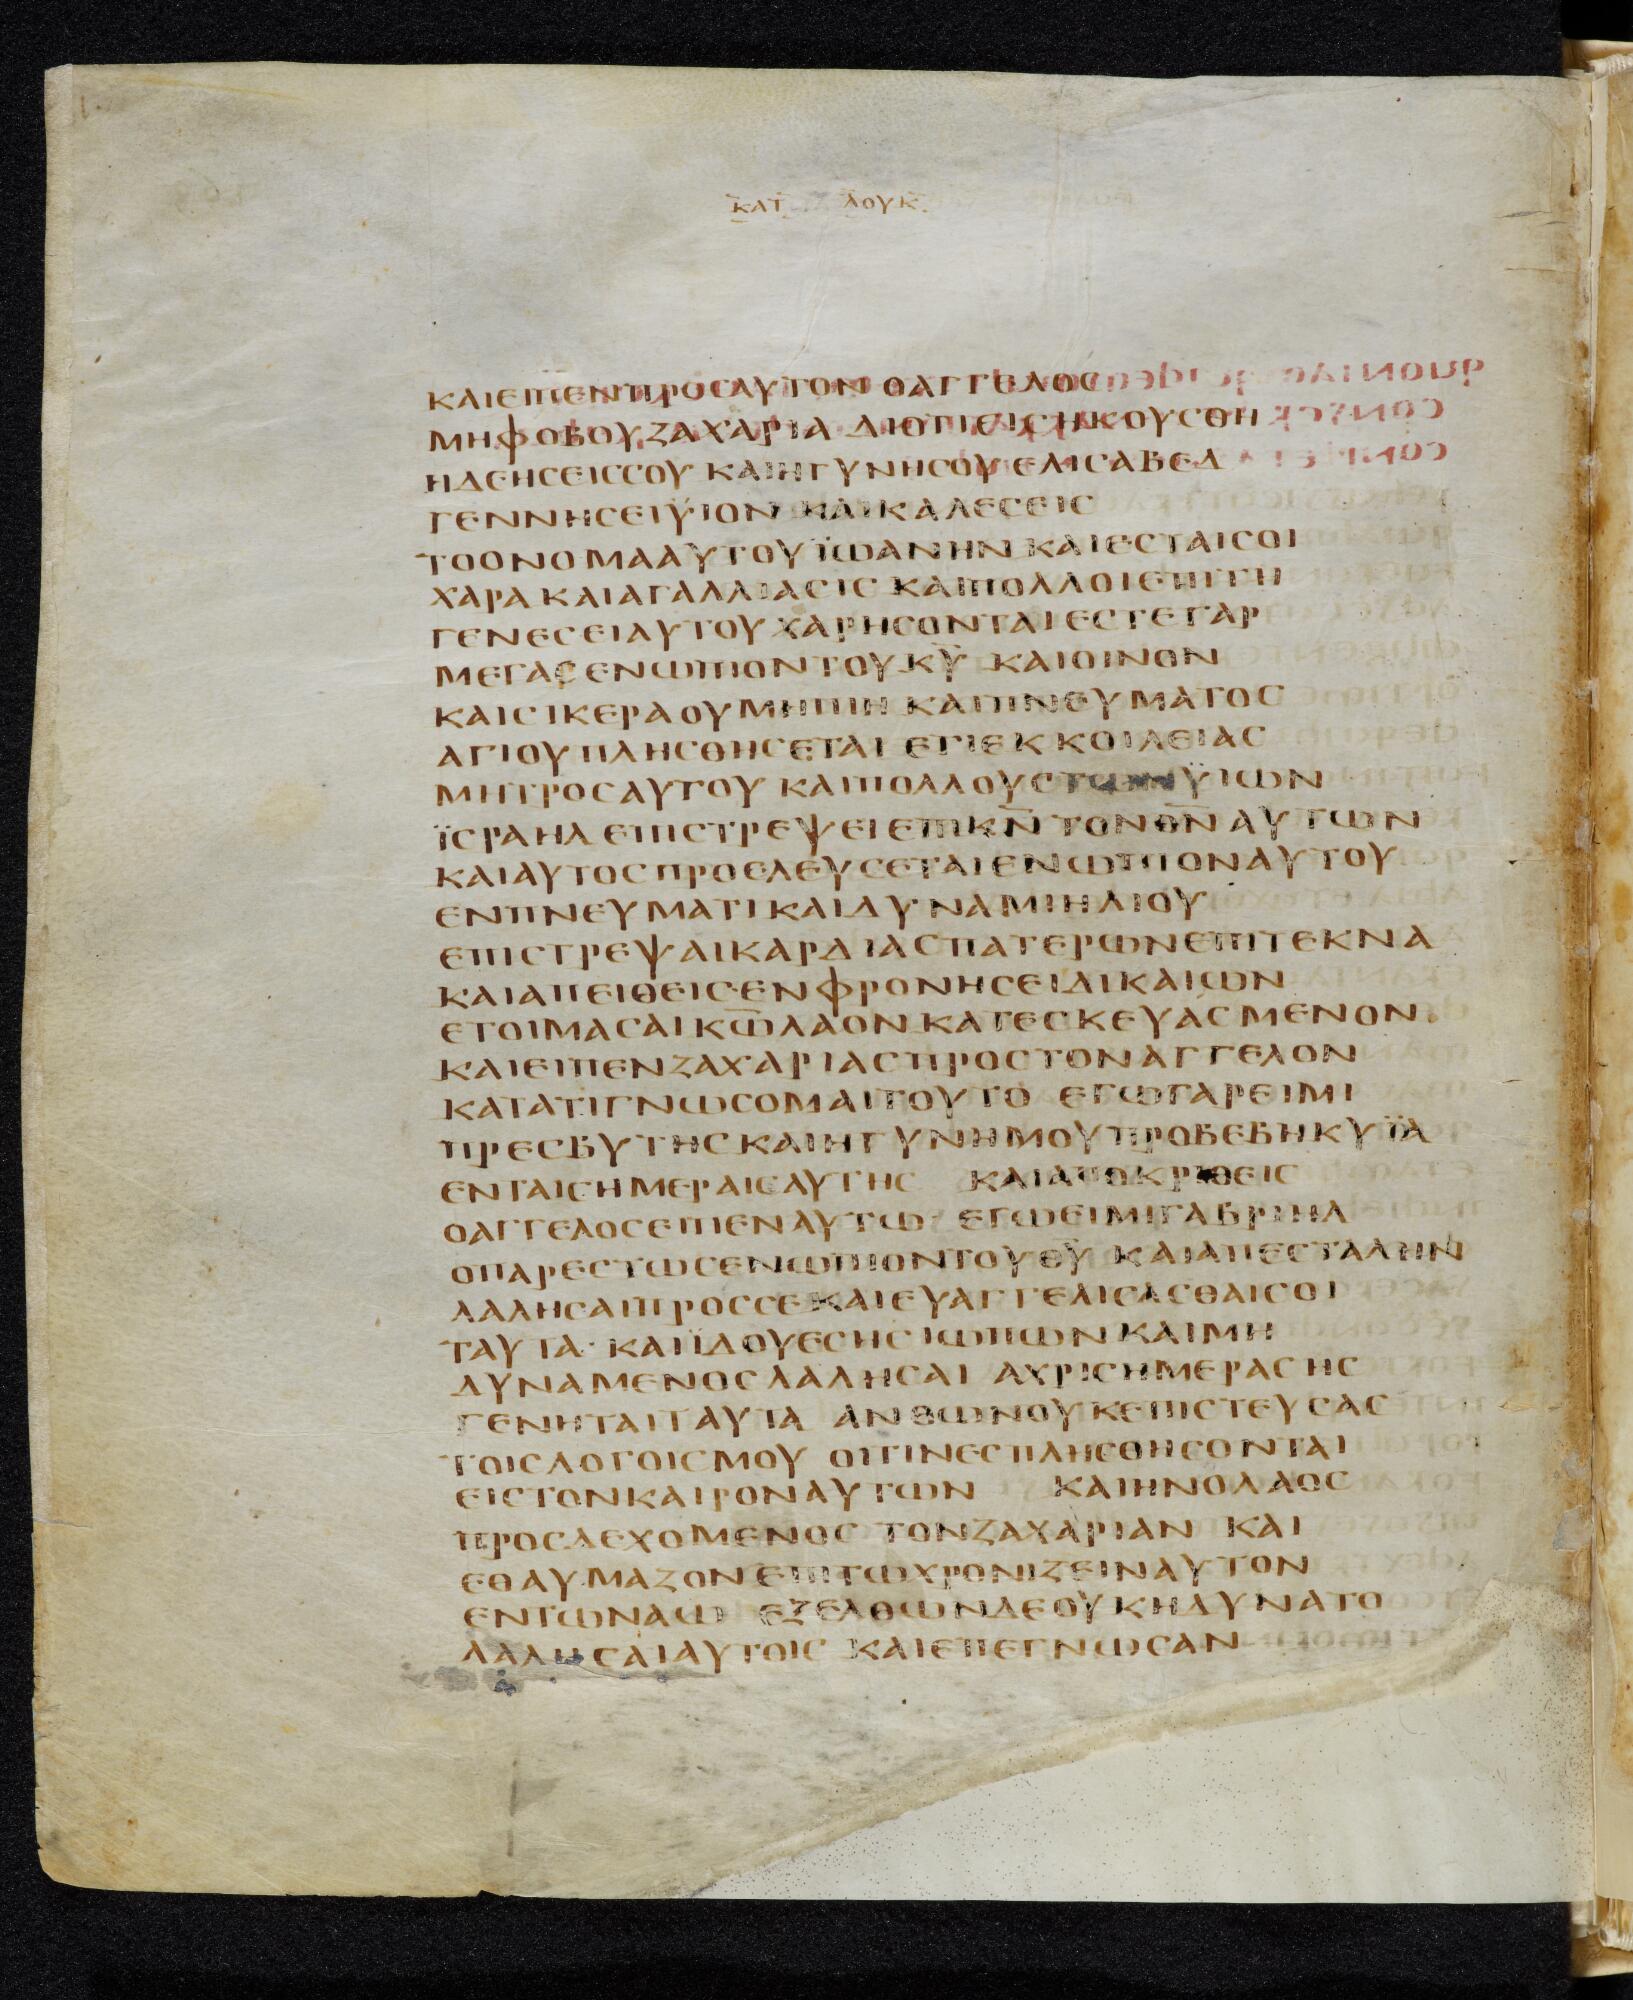 ΚΑΤ ΛΟΥΚ
ΚΑΙΕΙΠΕΝΠΡΟϹΑΥΤΟΝ ΟΑΓΓΕΛΟϹ
ΜΗΦΟΒΟΥΖΑΧΑΡΙΑ ΔΙΟΤΙΕΙϹΗΚΟΥϹΘΗ
ΗΔΕΗϹΕΙϹϹΟΥ ΚΑΙΗΓΥΝΗϹΟΥΕΛΙϹΑΒΕΔ
ΓΕΝΝΗϹΕΙΫΙΟΝ ΚΑΙΚΑΛΕϹΕΙϹ
ΤΟΟΝΟΜΑΑΥΤΟΥΪΩΑΝΗΝ ΚΑΙΕϹΤΑΙϹΟΙ
ΧΑΡΑ ΚΑΙΑΓΑΛΛΙΑϹΙϹ ΚΑΙΠΟΛΛΟΙΕΠΙΤΗ
ΓΕΝΕϹΕΙΑΥΤΟΥ ΧΑΡΗϹΟΝΤΑΙ ΕϹΤΕΓΑΡ
ΜΕΓΑϹ ΕΝΩΠΙΟΝΤΟΥΚ̅Υ̅ ΚΑΙΟΙΝΟΝ
ΚΑΙϹΙΚΕΡΑΟΥΜΗΠΙΗ ΚΑΙΠΝΕΥΜΑΤΟϹ
ΑΓΙΟΥΠΛΗϹΘΗϹΕΤΑΙ ΕΤΙΕΚΚΟΙΛΕΙΑϹ
ΜΗΤΡΟϹΑΥΤΟΥ ΚΑΙΠΟΛΛΟΥϹΤΩΝΫΙΩΝ
ΪϹΡΑΗΛΕΠΙϹΤΡΕΨΕΙΕΠΙΚ̅Ν̅ ΤΟΝΘ̅Ν̅ ΑΥΤΩΝ
ΚΑΙΑΥΤΟϹΠΡΟΕΛΕΥϹΕΤΑΙΕΝΩΠΙΟΝΑΥΤΟΥ
ΕΝΠΝΕΥΜΑΤΙΚΑΙΔΥΝΑΜΙΗΛΙΟΥ
ΕΠΙϹΤΡΕΨΑΙΚΑΡΔΙΑϹΠΑΤΕΡΩΝΕΠΙΤΕΚΝΑ
ΚΑΙΑΠΕΙΘΕΙϹΕΝΦΡΟΝΗϹΕΙΔΙΚΑΙΩΝ
ΕΤΟΙΜΑϹΑΙΚ̅Ω̅ΛΑΟΝΚΑΤΕϹΚΕΥΑϹΜΕΝΟΝ
ΚΑΙΕΙΠΕΝΖΑΧΑΡΙΑϹΠΡΟϹΤΟΝΑΓΓΕΛΟΝ
ΚΑΤΑΤΙΓΝΩϹΟΜΑΙΤΟΥΤΟ ΕΓΩΓΑΡΕΙΜΙ
ΠΡΕϹΒΥΤΗϹΚΑΙΗΓΥΝΗΜΟΥΠΡΟΒΕΒΗΚΥΪΑ
ΕΝΤΑΙϹΗΜΕΡΑΙϹΑΥΤΗϹ ΚΑΙΑΠΟΚΡΙΘΕΙϹ
ΟΑΓΓΕΛΟϹΕΙΠΕΝΑΥΤΩ ΕΓΩΕΙΜΙΓΑΒΡΙΗΛ
ΟΠΑΡΕϹΤΩϹΕΝΩΠΙΟΝΤΟΥΘ̅Υ̅ ΚΑΙΑΠΕϹΤΑΛΗΝ
ΛΑΛΗϹΑΙΠΡΟϹϹΕΚΑΙΕΥΑΓΓΕΛΙϹΑϹΘΑΙϹΟΙ
ΤΑΥΤΑ· ΚΑΙΪΔΟΥΕϹΗϹΙΩΠΩΝΚΑΙΜΗ
ΔΥΝΑΜΕΝΟϹΛΑΛΗϹΑΙ ΑΧΡΙϹΗΜΕΡΑϹΗϹ
ΓΕΝΗΤΑΙΤΑΥΤΑ ΑΝΘΩΝΟΥΚΕΠΙϹΤΕΥϹΑϹ
ΤΟΙϹΛΟΓΟΙϹΜΟΥ ΟΙΤΙΝΕϹΠΛΗϹΘΗϹΟΝΤΑΙ
ΕΙϹΤΟΝΚΑΙΡΟΝΑΥΤΩΝ ΚΑΙΗΝΟΛΑΟϹ
ΠΡΟϹΔΕΧΟΜΕΝΟϹ ΤΟΝΖΑΧΑΡΙΑΝ ΚΑΙ
ΕΘΑΥΜΑΖΟΝΕΠΙΤΩΧΡΟΝΙΖΕΙΝΑΥΤΟΝ
ΕΝΤΩΝΑΩ ΕΞΕΛΘΩΝΔΕΟΥΚΗΔΥΝΑΤΟ
ΛΑΛΗϹΑΙΑΥΤΟΙϹ ΚΑΙΕΠΕΓΝΩϹΑΝ